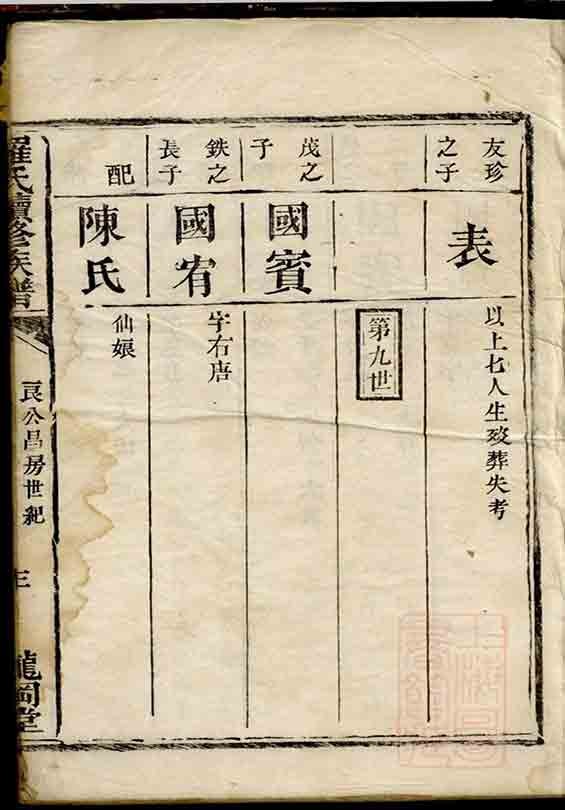 友珍
之子
表
以上七人生歿葬失考
第九世
茂之
子
國賓
鉄之
長子
國宥
字右唐
配
陳氏
仙娘
羅氏續修族譜
良公昌房世紀
三
龍岡堂